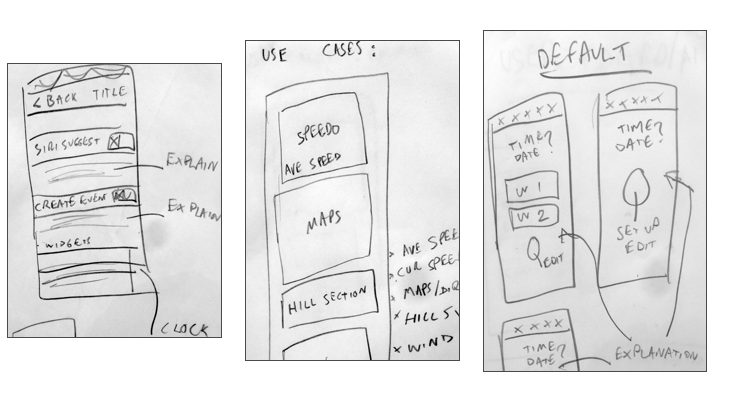 < BACK TITLE
SIRI SUGGEST
EXPLAIN
CREATE EVENT
EXPLAIN
WIDGETS
CLOCK
USE CASES:
SPEEDO
AVE SPEED
MAPS
HILL SECTION
> AVE SPEE
> CUR SPEE
x MAPS/DIR
x HILL S
x WIND
DEFAULT
x x x x x
TIME?
DATE?
W 1
W 2
EDIT
x x x x x
TIME?
DATE?
SET UP
EDIT
x x x x
TIME?
DATE?
EXPLANATION